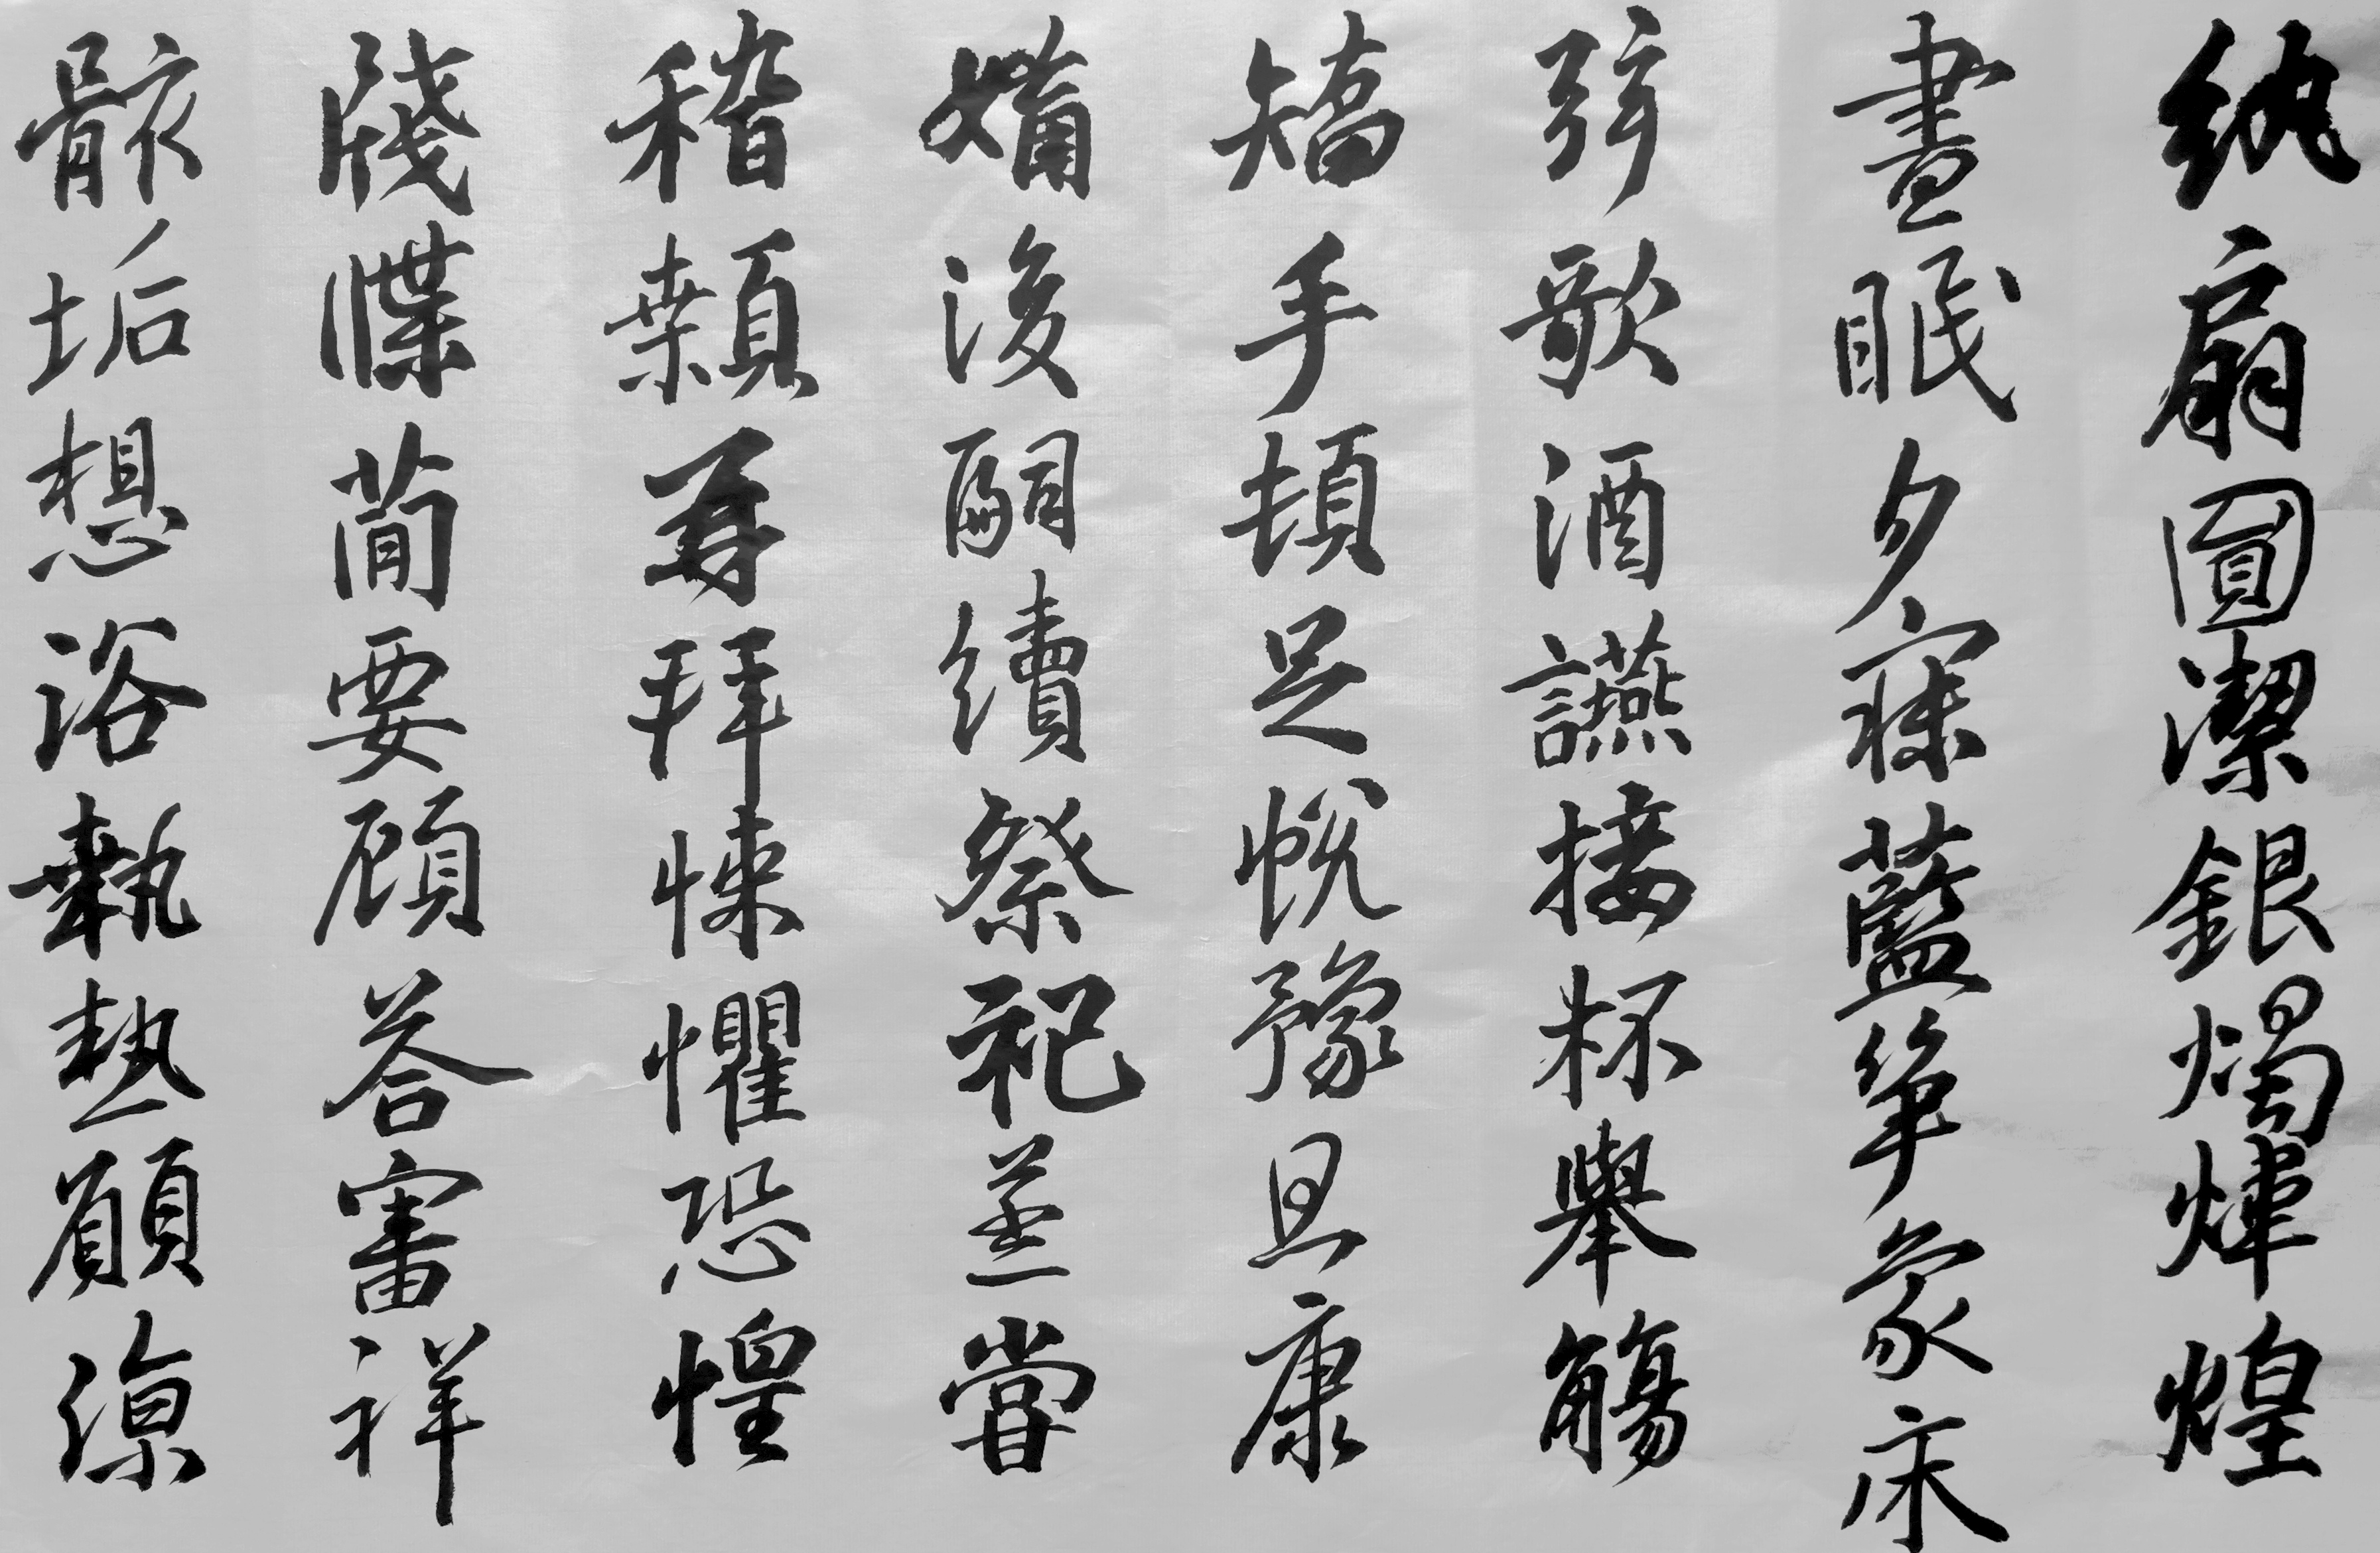 紈扇圓潔銀燭煒煌
晝眠夕寐藍筍象床
弦歌酒讌接杯舉觴
矯手頓足悅豫且康
嫡後嗣續祭祀蒸嘗
稽顙再拜悚懼恐惶
牋牒簡要顧答審詳
骸垢想浴執熱願涼